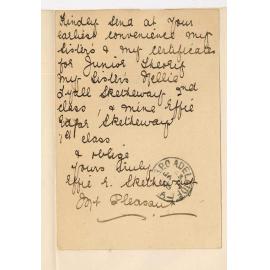 Kindly Send at Your
earliest convenience my
Sister's & my certificates
for Junior Theory
my Sister's Nellie
Lyall Sketheway 2nd
class, & mine Effie
Edgar Sketheway
1st class
& oblige
Yours truly
Effie E. Sketheway
Mt Pleasant
ADELAIDE